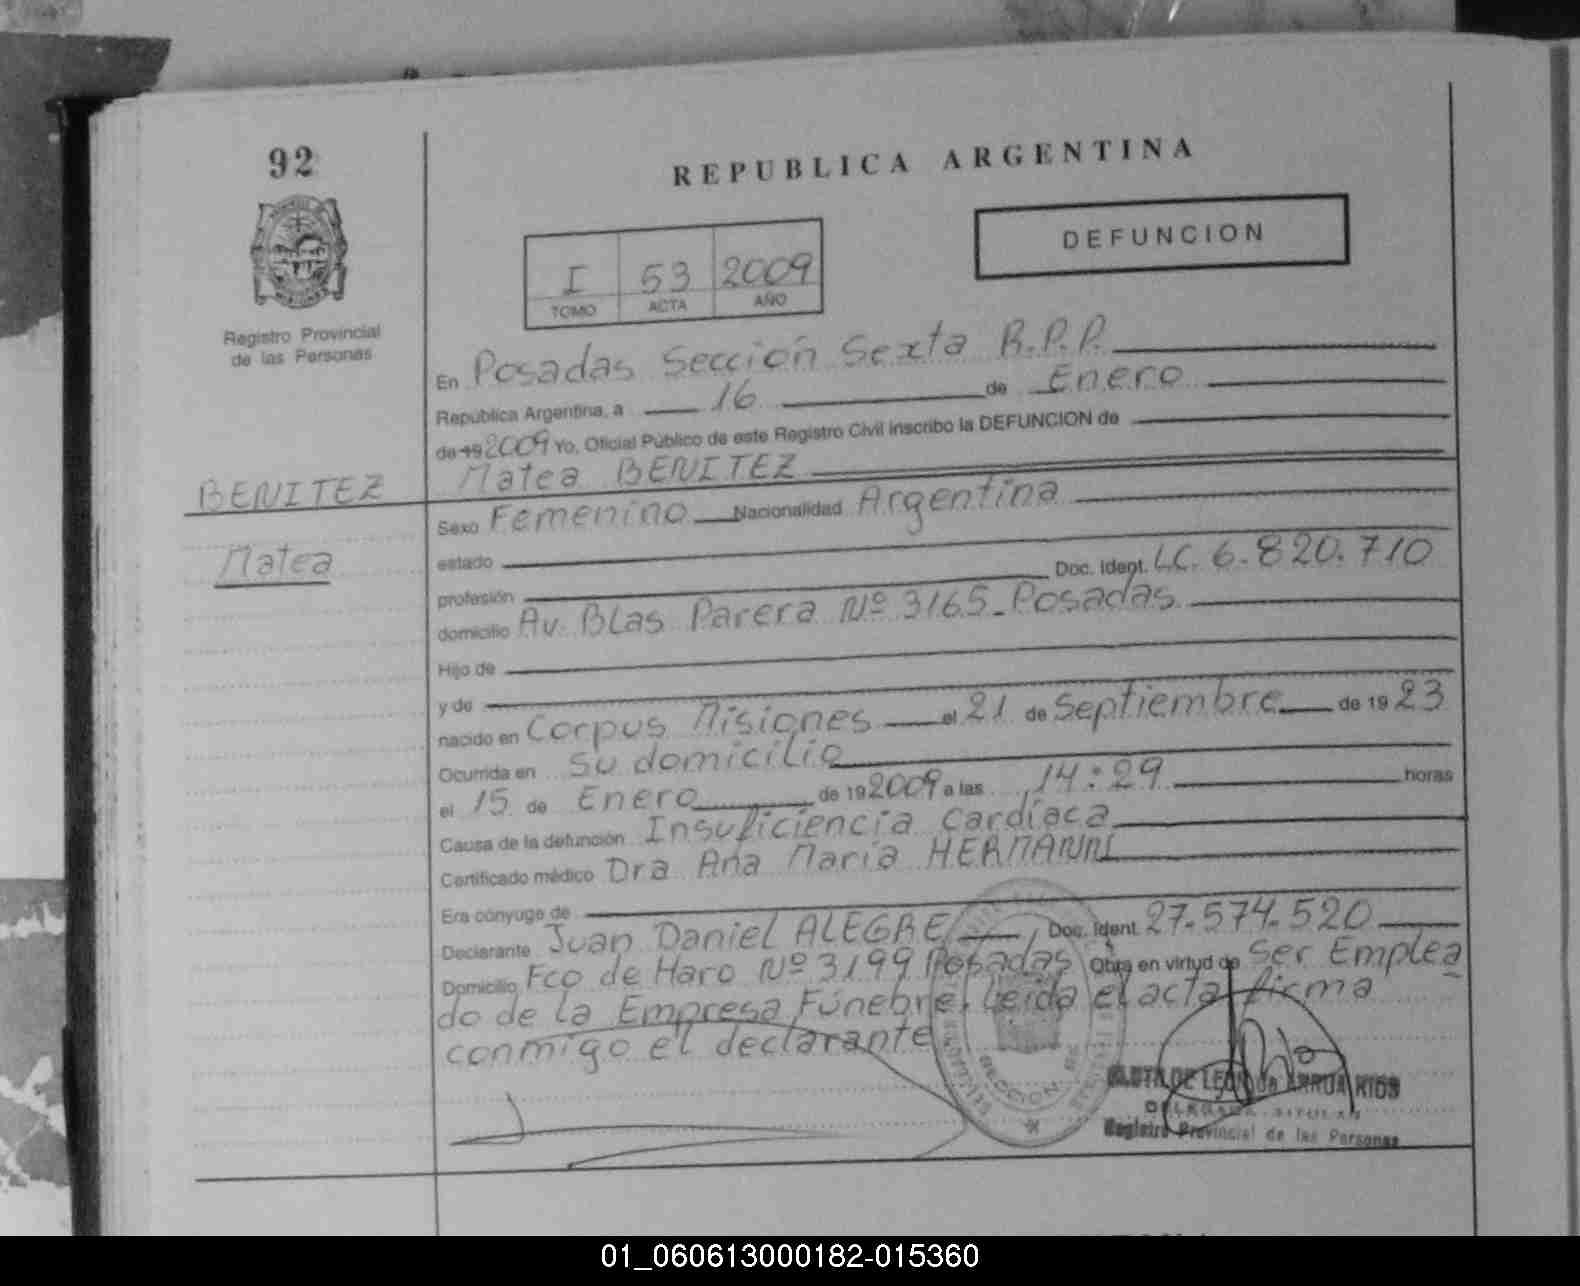 92
REPUBLICA ARGENTINA
DEFUNCION
I 53 2009
TOMO ACTA AÑO
Registro Provincial
de las Personas
En Posadas Sección Sexta R.P.P.
República Argentina, a 16 de Enero
de 19 2009 Yo, Oficial Público de este Registro Civil inscribo la DEFUNCION de
Matea BENITEZ
BENITEZ
Matea
Sexo Femenino Nacionalidad Argentina
estado
profesión Doc. Ident. LC. 6.820.710
domicilio Av. Blas Parera Nº 3165 - Posadas
Hijo de
y de
nacido en Corpus Misiones el 21 de Septiembre de 1923
Ocurrida en su domicilio
el 15 de Enero de 19 2009 a las 14:29 horas
Causa de la defunción Insuficiencia cardíaca
Certificado médico Dra Ana María HERMANNI
Era cónyuge de
Declarante Juan Daniel ALEGRE Doc. Ident. 27.574.520
Domicilio Fco de Haro Nº 3199 Posadas Obra en virtud de Ser Emplea
do de la Empresa Fúnebre. Leída el acta firma
conmigo el declarante
SECCION
DELEGADA TITULAR
Registro Provincial de las Personas
01_060613000182-015360